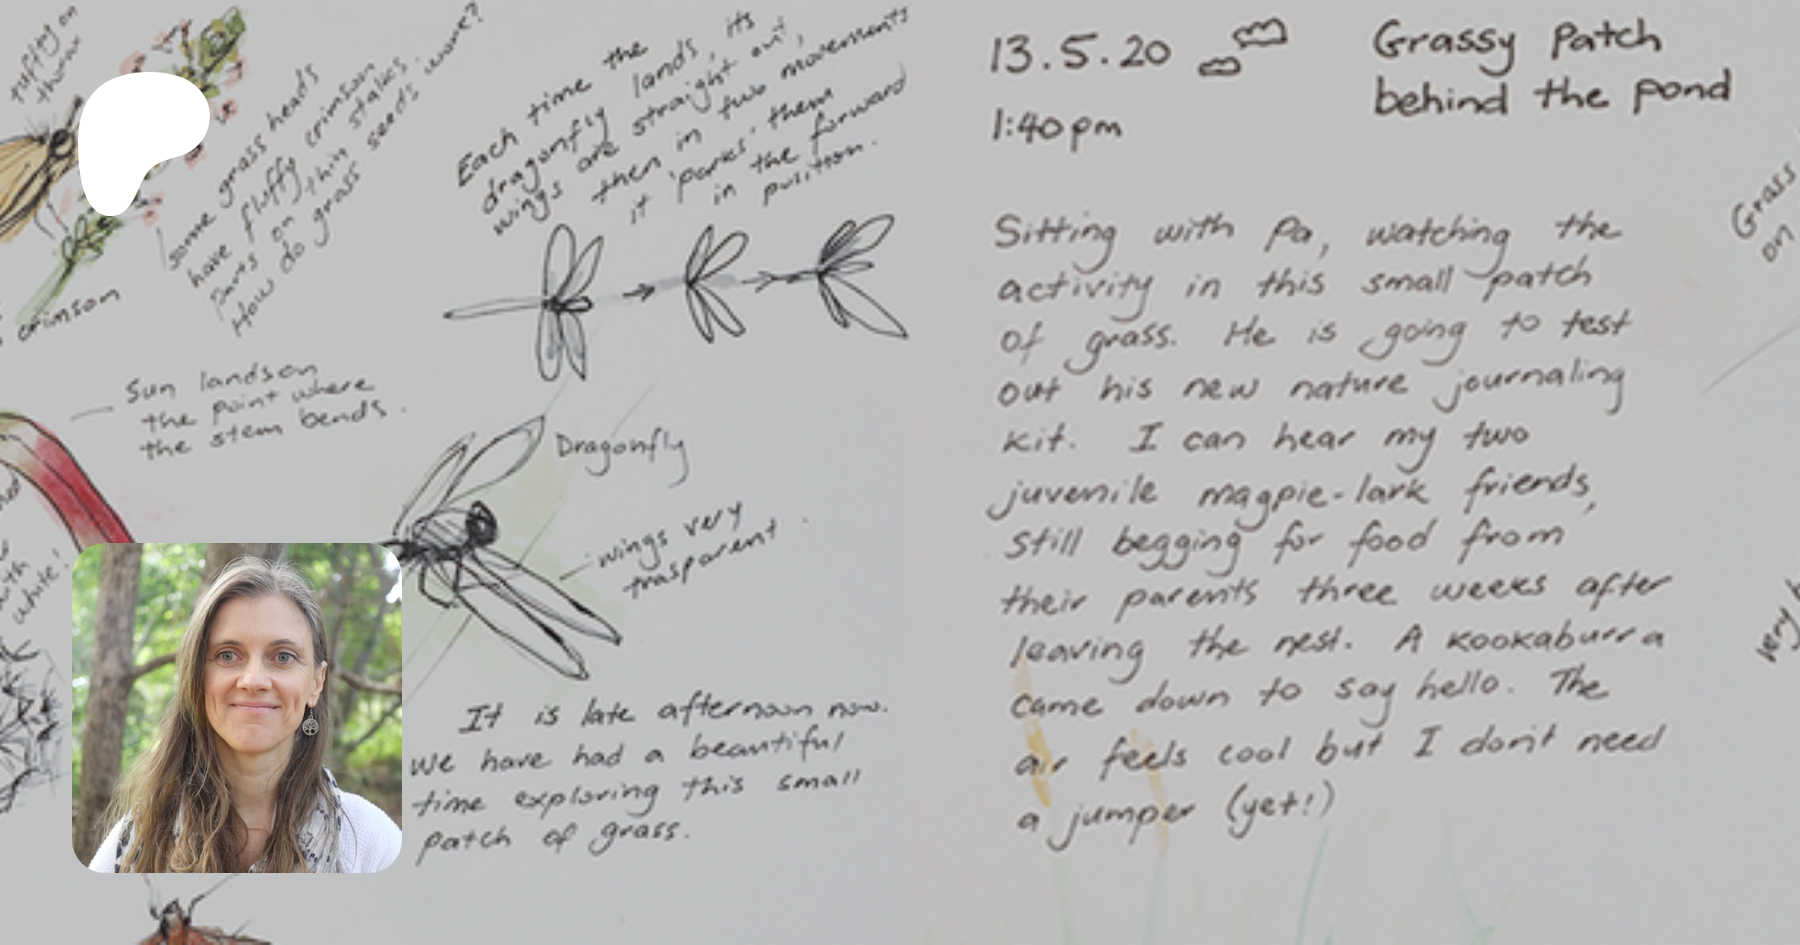 tufty on
thorax
some grass heads
have fluffy crimson
parts on thin stalks.
How do grass seeds work?
crimson
Each time the
dragonfly lands, its
wings are straight out,
then in two movements
it 'parks' them
in the forward
position.
Sun lands on
the point where
the stem bends.
with
white!
Dragonfly
wings very
trasparent
It is late afternoon now.
We have had a beautiful
time exploring this small
patch of grass.
13.5.20
1:40pm
Grassy Patch
behind the pond
Sitting with Pa, watching the
activity in this small patch
of grass. He is going to test
out his new nature journaling
kit. I can hear my two
juvenile magpie-lark friends,
still begging for food from
their parents three weeks after
leaving the nest. A kookaburra
came down to say hello. The
air feels cool but I don't need
a jumper (yet!)
Grass
on
very